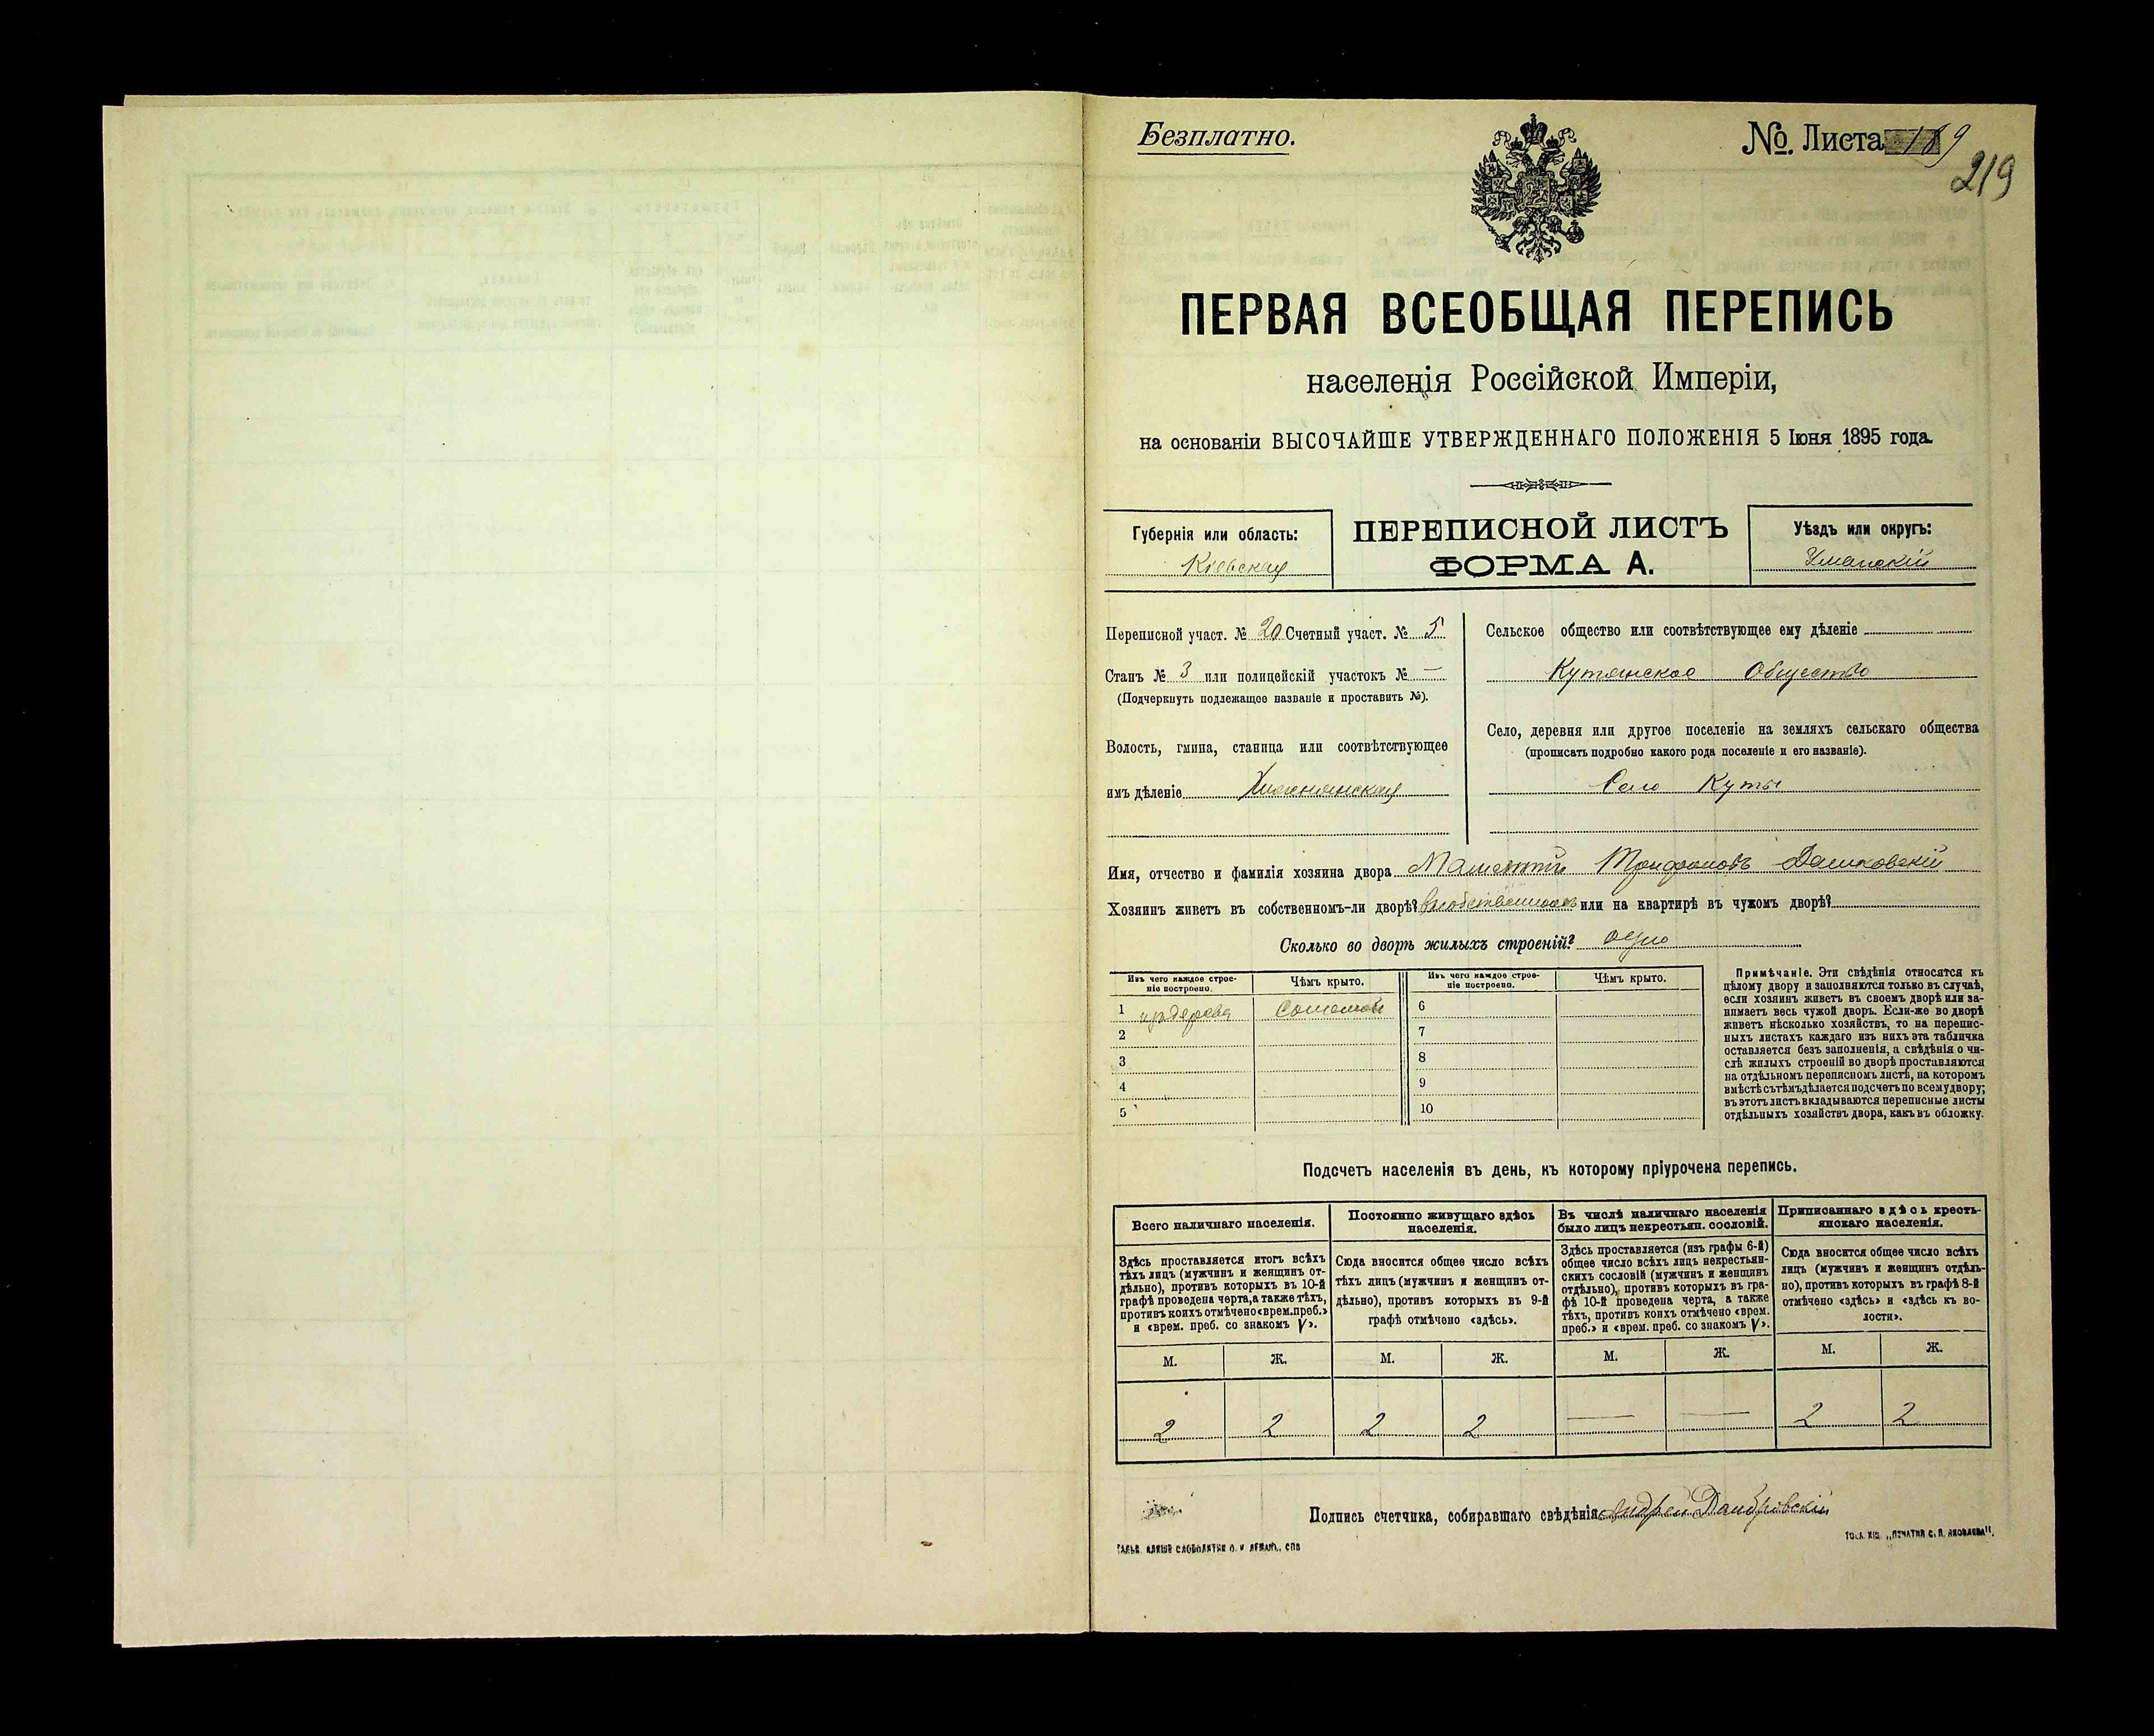 Безплатно.
№. Листа 189
219
ПЕРВАЯ ВСЕОБЩАЯ ПЕРЕПИСЬ
населенія Россійской Имперіи,
на основаніи ВЫСОЧАЙШЕ УТВЕРЖДЕННАГО ПОЛОЖЕНІЯ 5 Іюня 1895 года.
Губернія или область:
Кіевская
ПЕРЕПИСНОЙ ЛИСТЪ
ФОРМА А.
Уѣздъ или округъ:
Уманскій
Переписной участ. № 20 Счетный участ. № 5
Станъ № 3 или полицейскій участокъ № —
(Подчеркнуть подлежащее названіе и проставить №).
Волость, гмина, станица или соотвѣтствующее
имъ дѣленіе
Сельское общество или соотвѣтствующее ему дѣленіе
Кутянское Общество
Село, деревня или другое поселеніе на земляхъ сельскаго общества
(прописать подробно какого рода поселеніе и его названіе).
Село Куты
Имя, отчество и фамилія хозяина двора Дашковскій
Хозяинъ живетъ въ собственномъ-ли дворѣ? или на квартирѣ въ чужомъ дворѣ?
Сколько во дворѣ жилыхъ строеній? одно
Изъ чего каждое строе-
ніе построено.
Чѣмъ крыто.
Изъ чего каждое строе-
ніе построено.
Чѣмъ крыто.
1 издерева Соломой
2
3
4
5
6
7
8
9
10
Примѣчаніе. Эти свѣдѣнія относятся къ
цѣлому двору и заполняются только въ случаѣ,
если хозяинъ живетъ въ своемъ дворѣ или за-
нимаетъ весь чужой дворъ. Если-же во дворѣ
живетъ нѣсколько хозяйствъ, то на перепис-
ныхъ листахъ каждаго изъ нихъ эта табличка
оставляется безъ заполненія, а свѣдѣнія о чи-
слѣ жилыхъ строеній во дворѣ проставляются
на отдѣльномъ переписномъ листѣ, на которомъ
вмѣстѣ съ тѣмъ дѣлается подсчетъ по всему двору;
въ этотъ листъ вкладываются переписные листы
отдѣльныхъ хозяйствъ двора, какъ въ обложку.
Подсчетъ населенія въ день, къ которому пріурочена перепись.
Всего наличнаго населенія.
Постоянно живущаго здѣсь
населенія.
Въ числѣ наличнаго населенія
было лицъ некрестьян. сословій.
Приписаннаго здѣсь кресть-
янскаго населенія.
Здѣсь проставляется итогъ всѣхъ
тѣхъ лицъ (мужчинъ и женщинъ от-
дѣльно), противъ которыхъ въ 10-й
графѣ проведена черта, а также тѣхъ,
противъ коихъ отмѣчено «врем. преб.»
и «врем. преб. со знакомъ V».
Сюда вносится общее число всѣхъ
тѣхъ лицъ (мужчинъ и женщинъ от-
дѣльно), противъ которыхъ въ 9-й
графѣ отмѣчено «здѣсь».
Здѣсь проставляется (изъ графы 6-й)
общее число всѣхъ лицъ некрестьян-
скихъ сословій (мужчинъ и женщинъ
отдѣльно), противъ которыхъ въ гра-
фѣ 10-й проведена черта, а также
тѣхъ, противъ коихъ отмѣчено «врем.
преб.» и «врем. преб. со знакомъ V».
Сюда вносится общее число всѣхъ
лицъ (мужчинъ и женщинъ отдѣль-
но), противъ которыхъ въ графѣ 8-й
отмѣчено «здѣсь» и «здѣсь къ во-
лости».
М. Ж. М. Ж. М. Ж. М. Ж.
2 2 2 2 — — 2 2
Подпись счетчика, собиравшаго свѣдѣнія Андрей Домбровскій